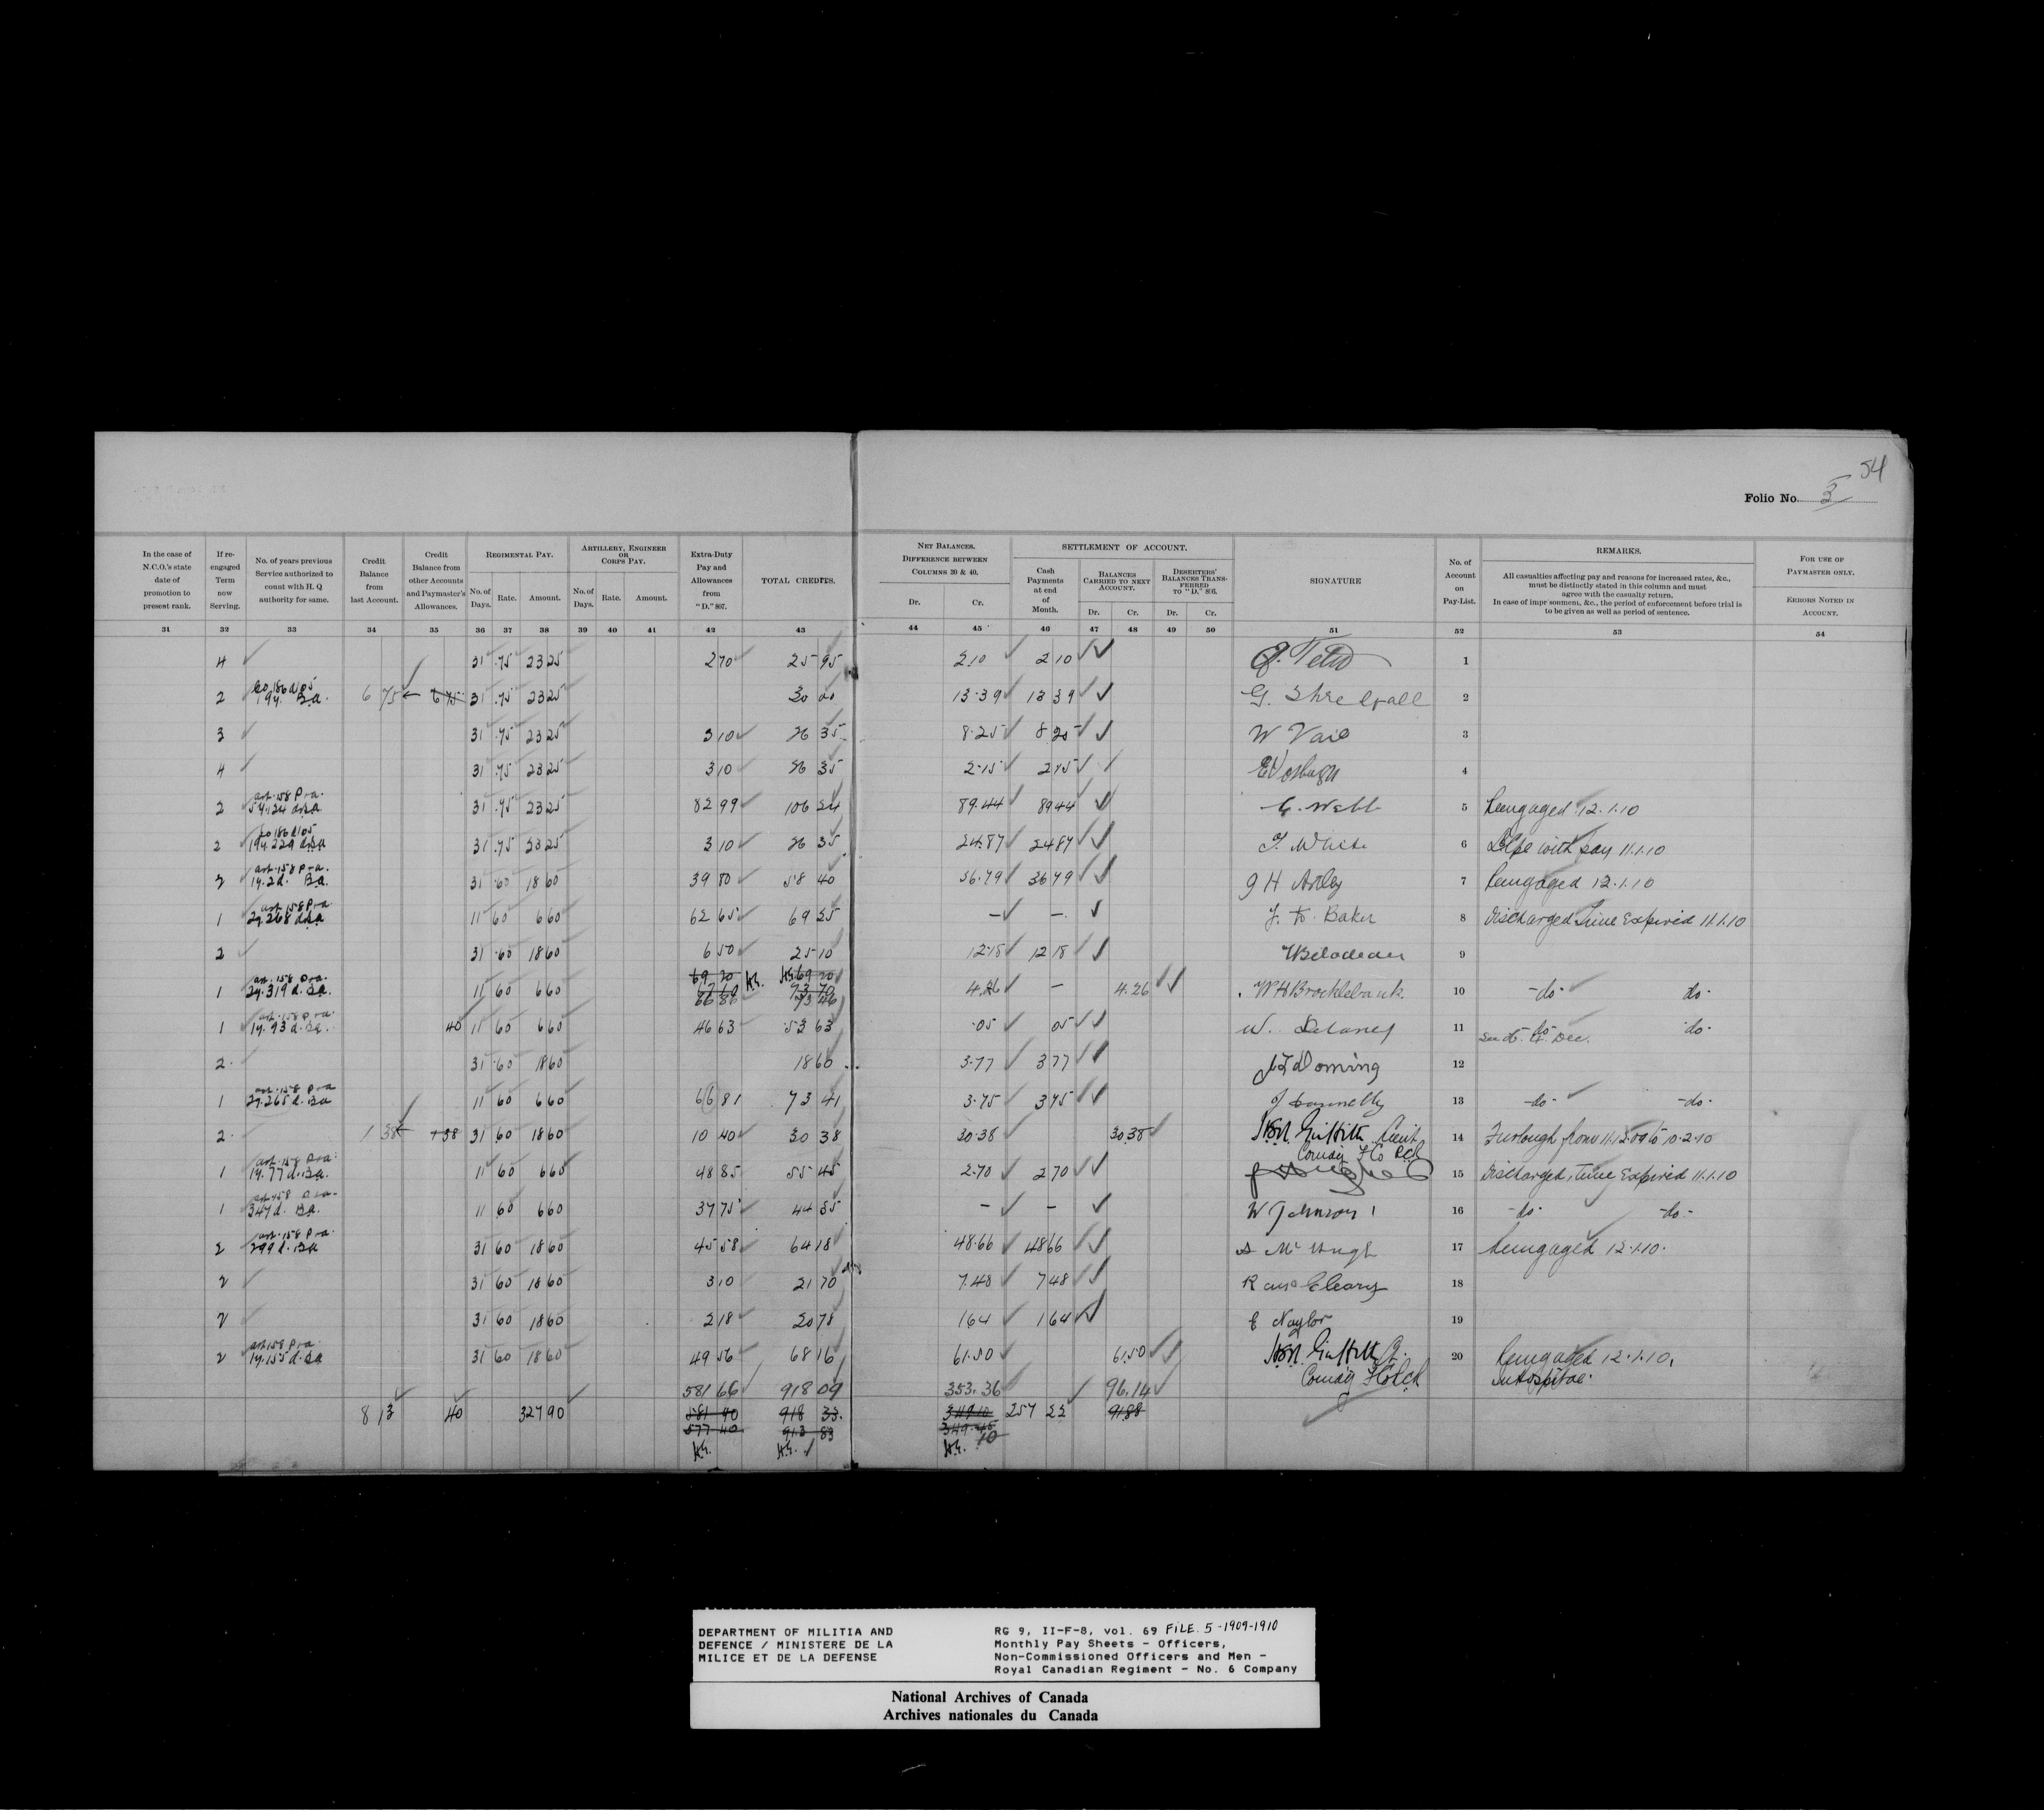 54
Folio No. 3
In the case of N.C.O.'s state date of promotion to present rank.
If re-engaged Term now Serving.
No. of years previous Service authorized to count with H. Q authority for same.
Credit Balance from last Account.
Credit Balance from other Accounts and Paymaster's Allowances.
REGIMENTAL PAY.
No. of Days. Rate. Amount.
ARTILLERY, ENGINEER OR CORPS PAY.
No. of Days. Rate. Amount.
Extra-Duty Pay and Allowances from "D." 807.
TOTAL CREDITS.
NET BALANCES. DIFFERENCE BETWEEN COLUMNS 30 & 40.
Dr. Cr.
SETTLEMENT OF ACCOUNT.
Cash Payments at end of Month.
BALANCES CARRIED TO NEXT ACCOUNT.
Dr. Cr.
DESERTERS' BALANCES TRANSFERRED TO "D." 806.
Dr. Cr.
SIGNATURE
No. of Account on Pay-List.
REMARKS.
All casualties affecting pay and reasons for increased rates, &c., must be distinctly stated in this column and must agree with the casualty return.
In case of impr sonment, &c., the period of enforcement before trial is to be given as well as period of sentence.
FOR USE OF PAYMASTER ONLY.
ERRORS NOTED IN ACCOUNT.
31 32 33 34 35 36 37 38 39 40 41 42 43 44 45 46 47 48 49 50 51 52 53 54
4 31 .75 23 25 2 70 25 95 2.10 2 10 1
2 6 75 6 75 31 .75 23 25 30 00 13.39 13 39 G. Shrelfall 2
3 31 .75 23 25 3 10 26 35 8.25 8 25 W Vail 3
4 31 .75 23 25 3 10 26 35 2.15 2 15 4
2 31 .75 23 25 82 99 106 24 89.44 89 44 C. Webb 5 Reengaged 12.1.10
2 31 .75 23 25 3 10 26 35 24.87 24 87 T. White 6 with pay 11.1.10
2 31 .60 18 60 39 80 58 40 36.79 36 79 7 Reengaged 12.1.10
1 11 60 6 60 62 65 69 25 — — Baker 8 Discharged Time Expired 11.1.10
2 31 .60 18 60 6 50 25 10 12.18 12 18 Bilodeau 9
1 11 60 6 60 4.26 — 4.26 W H Brocklebank 10 -do- do-
1 40 11 60 6 60 46 63 53 63 .05 05 W. Delaney 11 -do- do-
2 31 .60 18 60 18 60 3.77 3 77 Doming 12
1 11 60 6 60 66 81 73 41 3.75 3 75 J Connelly 13 -do- -do-
2 1 38 1 38 31 60 18 60 10 40 30 38 30.38 30.38 Griffith Lieut 14 Furlough from 11.12.09 to 10.2.10
1 11 60 6 60 48 85 55 45 2.70 2 70 15 Discharged, Time Expired 11.1.10
1 11 60 6 60 37 75 44 35 — — W Johnson 16 -do- -do-
2 31 60 18 60 45 58 64 18 48.66 48 66 17 Reengaged 12.1.10.
2 31 60 18 60 3 10 21 70 7.48 7 48 18
2 31 60 18 60 2 18 20 78 1 64 1 64 E Naylor 19
2 31 60 18 60 49 56 68 16 61.50 61.50 Griffith 20 Reengaged 12.1.10.
In Hospital.
581 66 918 09 353.36 96.14
8 13 40 327 90 581 90 918 33. 257 22 91.88
577 40 913 83
DEPARTMENT OF MILITIA AND
DEFENCE / MINISTERE DE LA
MILICE ET DE LA DEFENSE
RG 9, II-F-8, vol. 69 FILE. 5-1909-1910
Monthly Pay Sheets - Officers,
Non-Commissioned Officers and Men -
Royal Canadian Regiment - No. 6 Company
National Archives of Canada
Archives nationales du Canada